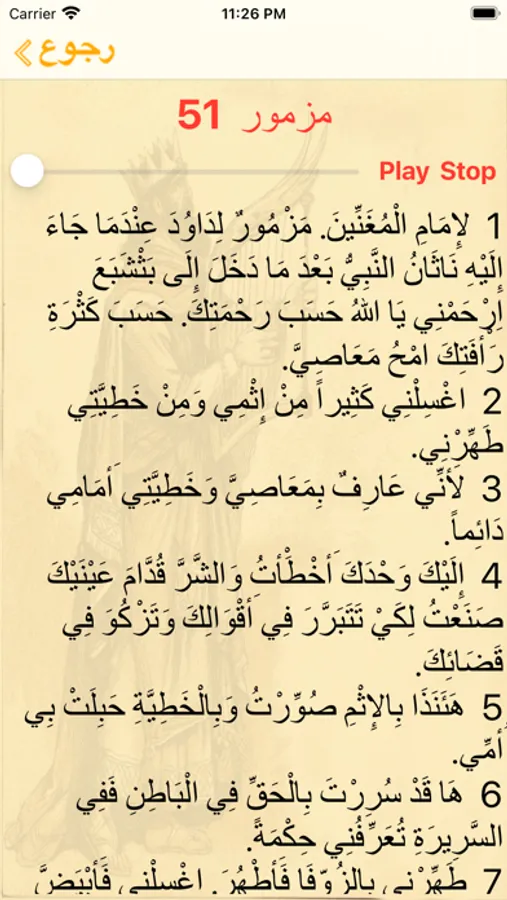 Carrier 11:26 PM
رجوع
مزمور 51
Play Stop
1 لإِمَامِ الْمُغَنِّينَ. مَزْمُورٌ لِدَاوُدَ عِنْدَمَا جَاءَ
إِلَيْهِ نَاثَانُ النَّبِيُّ بَعْدَ مَا دَخَلَ إِلَى بَثْشَبَعَ
اِرْحَمْنِي يَا اللهُ حَسَبَ رَحْمَتِكَ. حَسَبَ كَثْرَةِ
رَأْفَتِكَ امْحُ مَعَاصِيَّ.
2 اغْسِلْنِي كَثِيراً مِنْ إِثْمِي وَمِنْ خَطِيَّتِي
طَهِّرْنِي.
3 لأَنِّي عَارِفٌ بِمَعَاصِيَّ وَخَطِيَّتِي أَمَامِي
دَائِماً.
4 إِلَيْكَ وَحْدَكَ أَخْطَأْتُ وَالشَّرَّ قُدَّامَ عَيْنَيْكَ
صَنَعْتُ لِكَيْ تَتَبَرَّرَ فِي أَقْوَالِكَ وَتَزْكُوَ فِي
قَضَائِكَ.
5 هَئَنَذَا بِالإِثْمِ صُوِّرْتُ وَبِالْخَطِيَّةِ حَبِلَتْ بِي
أُمِّي.
6 هَا قَدْ سُرِرْتَ بِالْحَقِّ فِي الْبَاطِنِ فَفِي
السَّرِيرَةِ تُعَرِّفُنِي حِكْمَةً.
7 طَهِّرْنِي بِالزُوّفَا فَأَطْهُرَ. اغْسِلْنِي فَأَبْيَضَّ